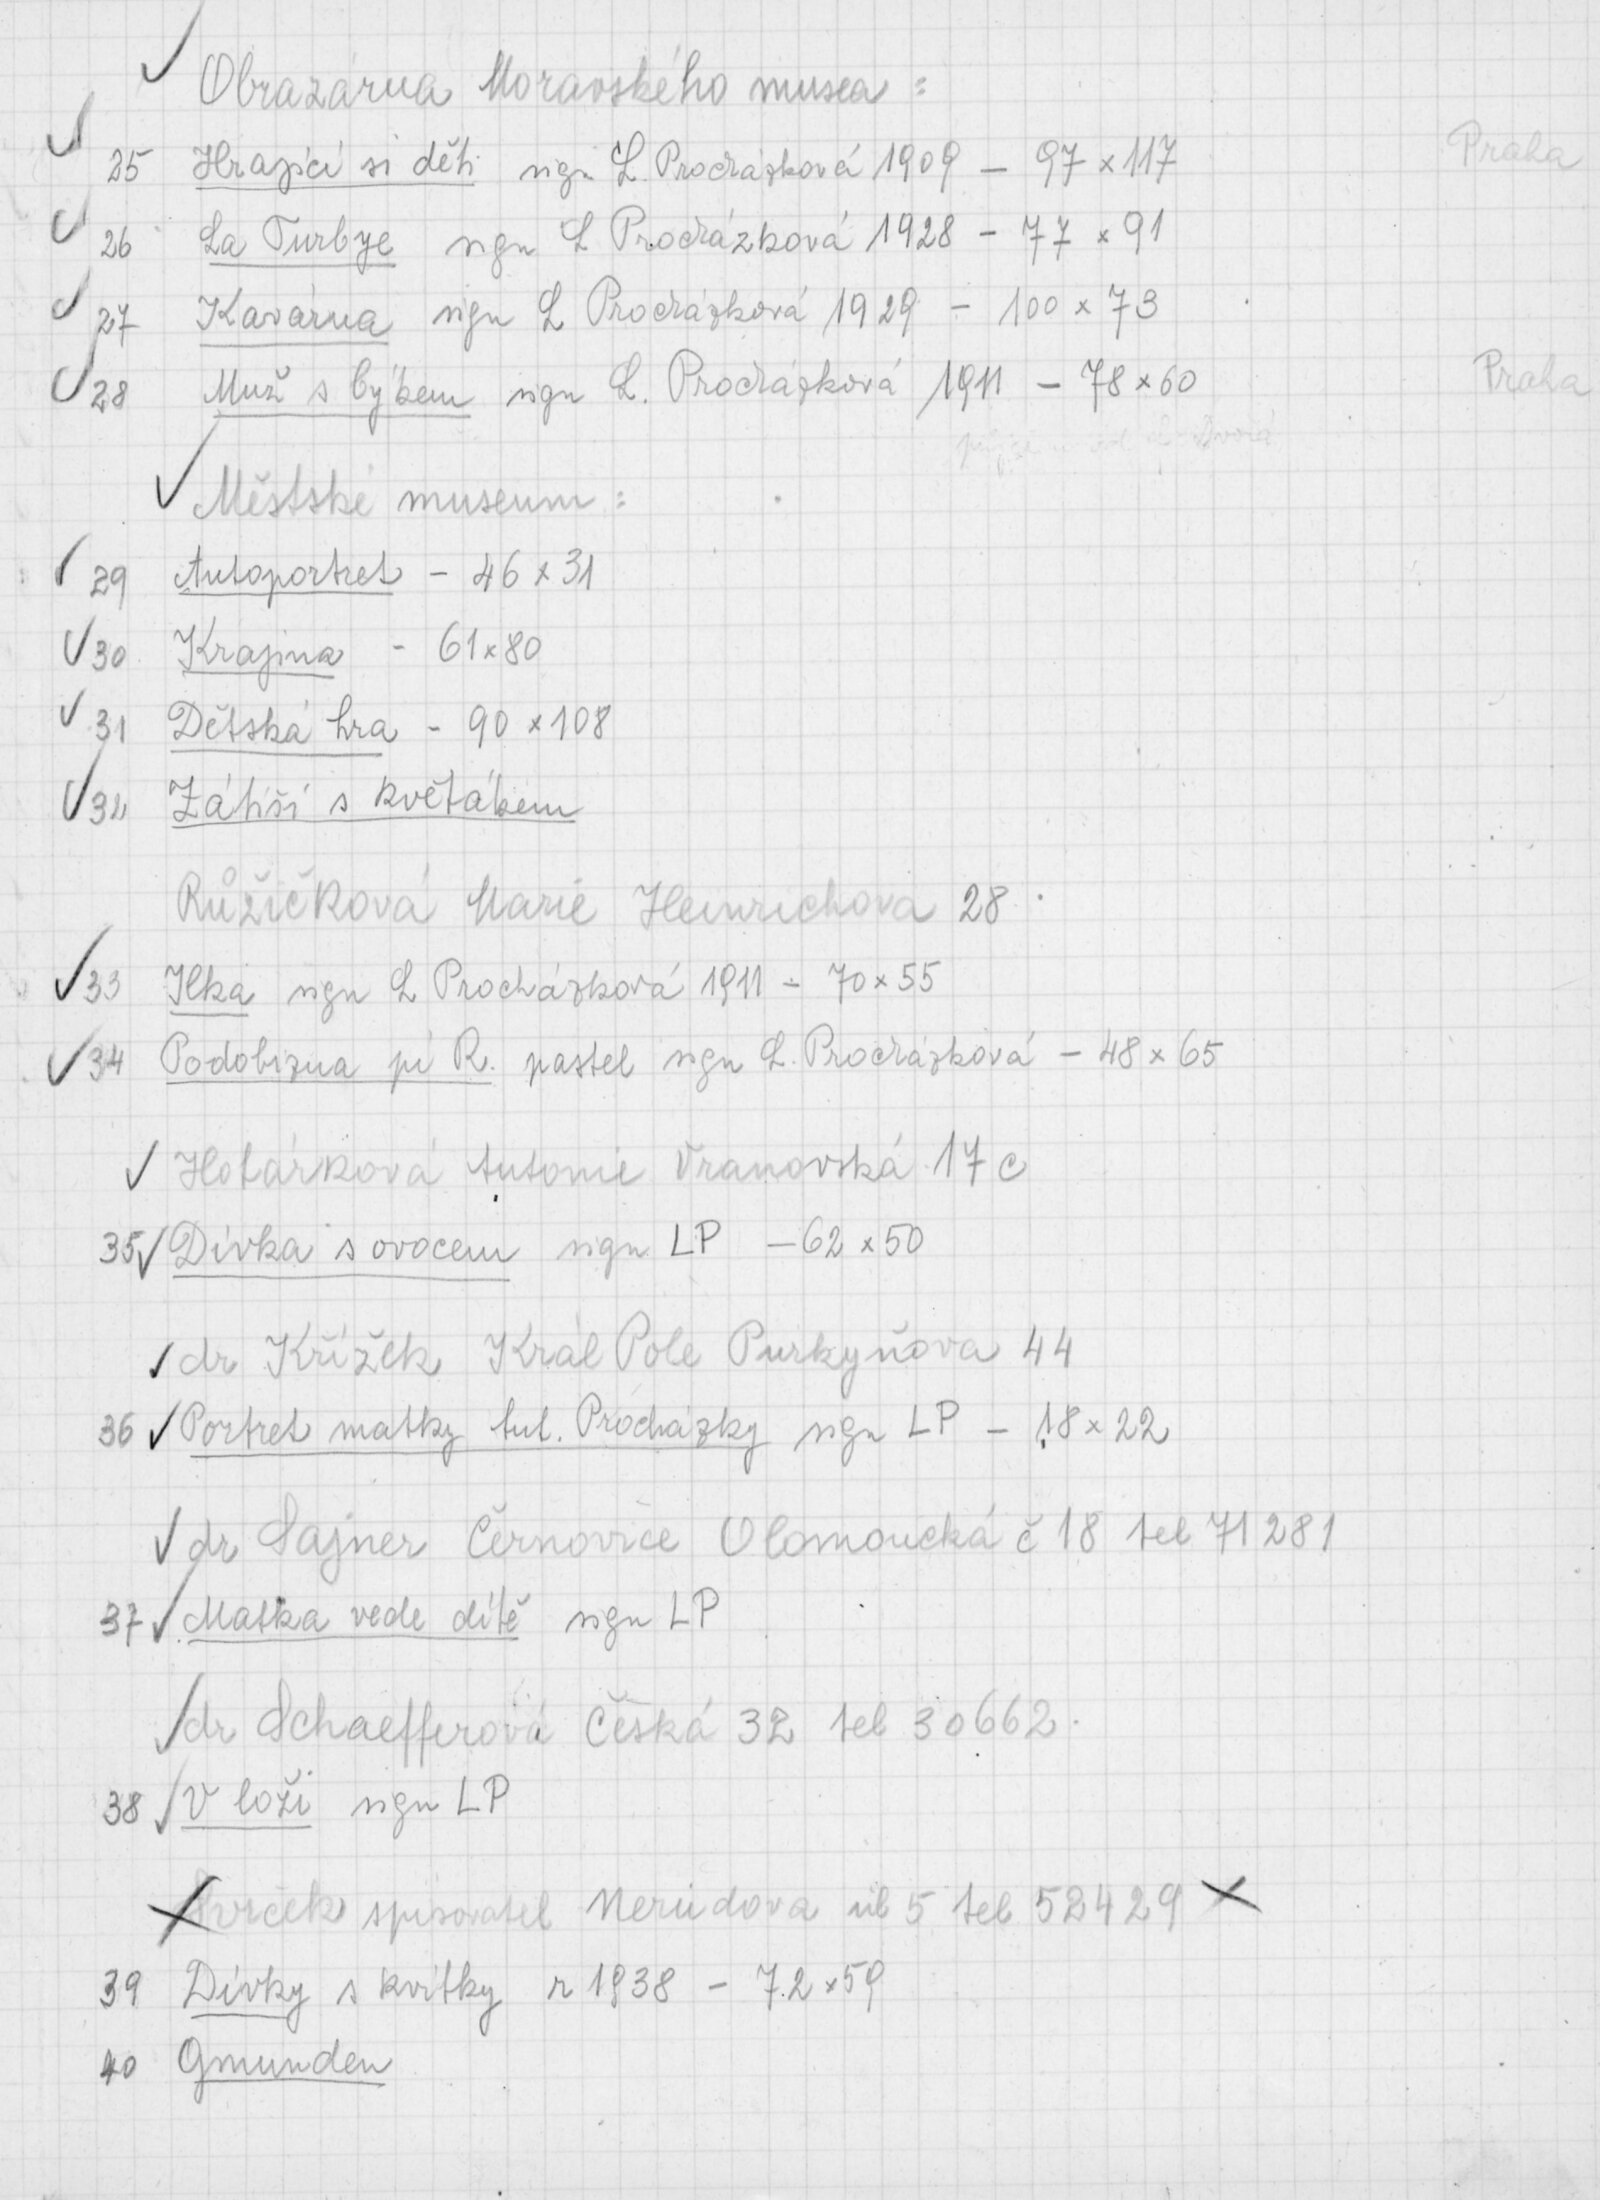 ✓ Obrazárna Moravského musea :
✓ 25 Hrající si děti sign L. Procházková 1909 – 97 x 117 Praha
✓ 26 La Turbye sign L Procházková 1928 – 77 x 91
✓ 27 Kavárna sign L Procházková 1929 – 100 x 73
✓ 28 Muž s býkem sign L. Procházková 1911 – 78 x 60 Praha
✓ Městské museum :
✓ 29 Autoportret – 46 x 31
✓ 30 Krajina - 61 x 80
✓ 31 Dětská hra - 90 x 108
✓ 32 Zátiší s květákem
Růžičková Marie Heinrichova 28
✓ 33 Ilka sign L Procházková 1911 – 70 x 55
✓ 34 Podobizna pí R. pastel sign L. Procházková – 48 x 65
✓ Hotárková Antonie Vranovská 17 c
35 ✓ Dívka s ovocem sign LP – 62 x 50
✓ dr Křížek Král Pole Purkyňova 44
36 ✓ Portret matky Ant. Procházky sign LP – 18 x 22
✓ dr Sajner Černovice Olomoucká č 18 tel 71281
37 ✓ Matka vede dítě sign LP
✓ dr Schaefferová Česká 32 tel 30662
38 ✓ V loži sign LP
spisovatel Nerudova ul 5 tel 52429 ×
39 Dívky s kvítky r 1938 – 72 x 59
40 Gmunden